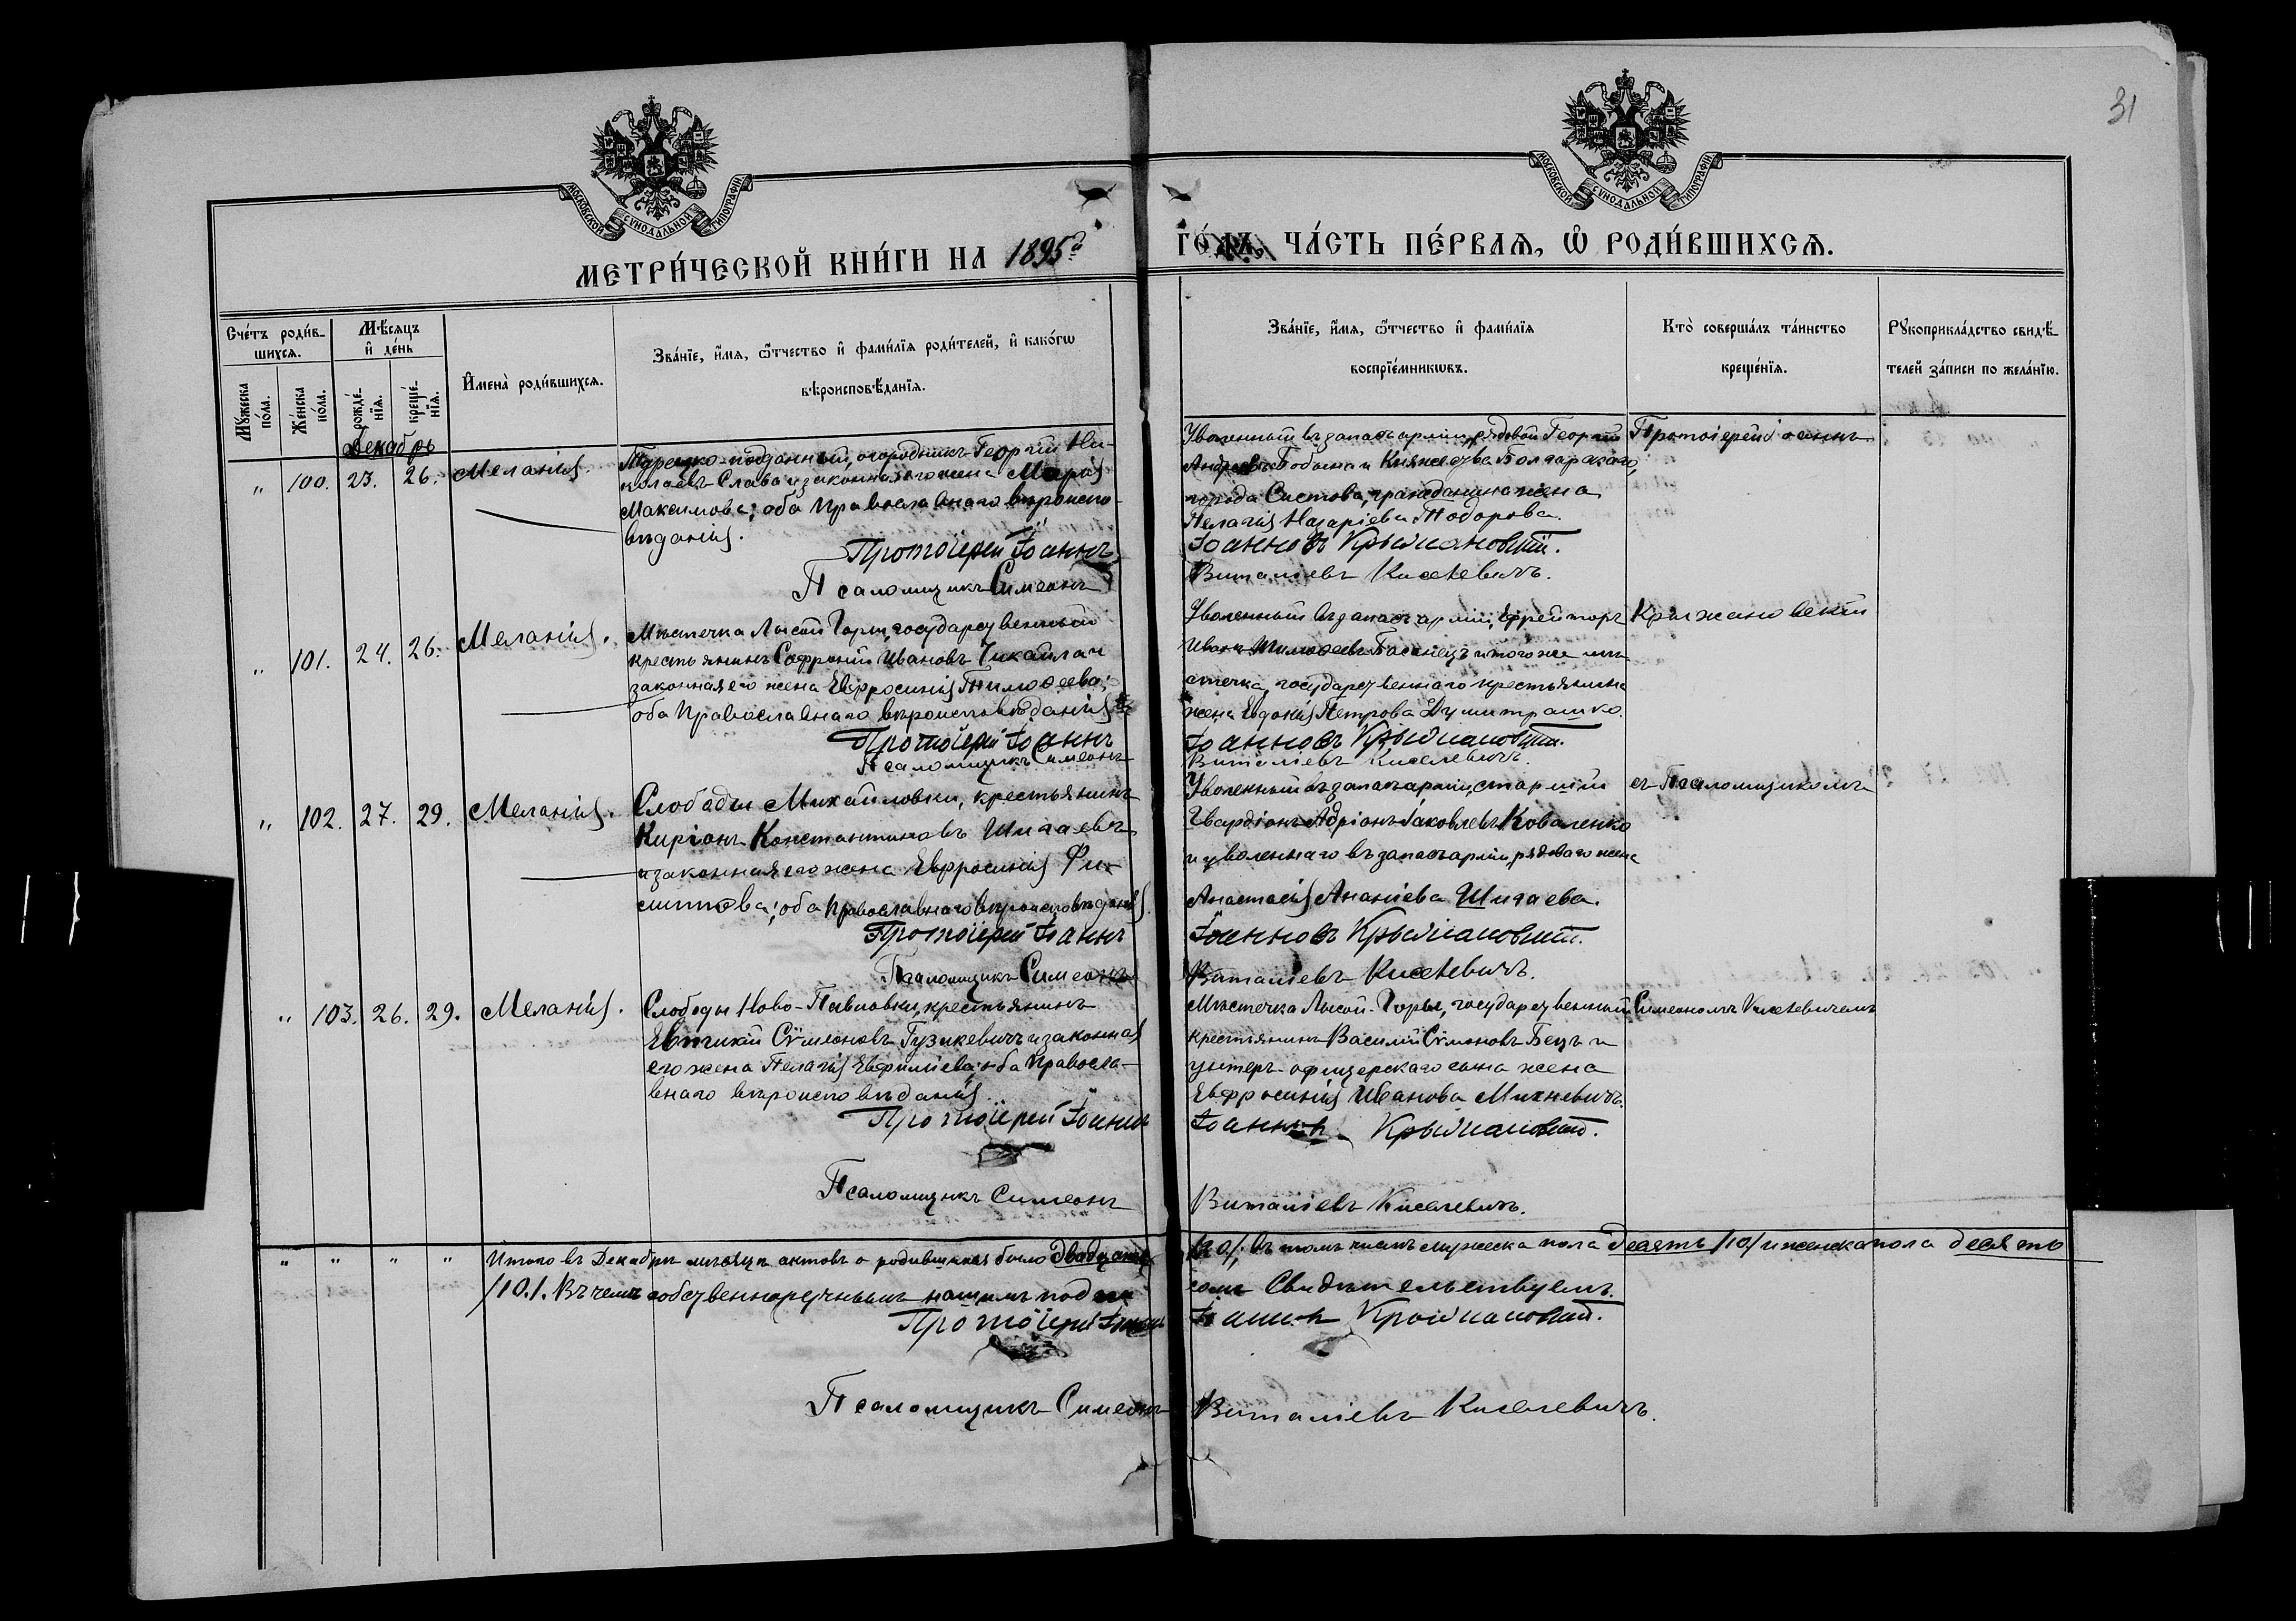 31
МОСКОВСКОЙ СѴНОДАЛЬНОЙ ТИПОГРАФІИ
МОСКОВСКОЙ СѴНОДАЛЬНОЙ ТИПОГРАФІИ
МЕТРИ́ЧЕСКОЙ КНИ́ГИ НА 1895й ГО́ДЪ, ЧА́СТЬ ПЕ́РВАЯ, Ѡ РОДИ́ВШИХСЯ.
Сче́тъ роди́в-
шихся.
Мѣ́сяцъ
и де́нь
Му́жеска
по́ла.
Же́нска
по́ла.
рожде́-
нія.
креще́-
нія.
Имена̀ роди́вшихся.
Зва́ніе, и́мя, ѻ҆́тчество и фами́лія роди́телей, и како́гѡ
вѣроисповѣ́данія.
Зва́ніе, и́мя, ѻ҆́тчество и фами́лія
воспріе́мникѡвъ.
Кто̀ соверша́лъ та́инство
креще́нія.
Рꙋкоприкла́дство свидѣ́-
телей за́писи по жела́нію.
Декабрь
„ 100. 23. 26. Меланія.
Турецко-подданный, огородникъ Георгій Ни-
колаевъ Слава и законная его жена Марія
Максимова; оба Православнаго вѣроиспо-
вѣданія.
Протоіерей Іоаннъ
Псаломщикъ Симеонъ
Уволенный въ запасъ арміи, рядовой Георгій
Андреевъ и Княжества Болгарскаго,
города Систова, гражданина жена
Пелагія Назаріева Тодорова.
Іоанновъ Крыжановскій.
Виталіевъ Киселевичъ.
Протоіерей Іоаннъ
„ 101. 24. 26. Меланія.
Мѣстечка Лысой Горы, государственный
крестьянинъ Софроній Ивановъ Чикайла и
законная его жена Евфросинія Тимофеева;
оба Православнаго вѣроисповѣданія.
Протоіерей Іоаннъ
Псаломщикъ Симеонъ
Уволенный въ запасъ арміи, ефрейторъ
Иванъ Тимофеевъ и того же мѣ-
стечка, государственнаго крестьянина
жена Евдокія Петрова Думитрашко.
Іоанновъ Крыжановскій.
Виталіевъ Киселевичъ.
Крыжановскій
„ 102. 27. 29. Меланія.
Слободы Михайловки, крестьянинъ
Киріонъ Константиновъ Шигаевъ
и законная его жена Евфросинія Фи-
липпова; оба Православнаго вѣроисповѣданія.
Протоіерей Іоаннъ
Псаломщикъ Симеонъ
Уволенный въ запасъ арміи, старшій
Гвардіонъ Адріонъ Іаковлевъ Коваленко
и уволеннаго въ запасъ арміи, рядоваго жена
Анастасія Ананіева Шигаева.
Іоанновъ Крыжановскій.
Виталіевъ Киселевичъ.
съ Псаломщикомъ
„ 103. 26. 29. Меланія.
Слободы Ново-Павловки, крестьянинъ
Евтихій Сѵмеоновъ Гузикевичъ и законная
его жена Пелагія Евфиміева; оба Правосла-
внаго вѣроисповѣданія.
Протоіерей Іоаннъ
Псаломщикъ Симеонъ
Мѣстечка Лысой-Горы, государственный
крестьянинъ Василій Сѵмоновъ Бецъ и
унтеръ-офицерскаго сына жена
Евфросинія Иванова Михневичъ.
Іоанновъ Крыжановскій.
Виталіевъ Киселевичъ.
Симеономъ Киселевичемъ
„ „ „ „ Итого въ Декабрѣ мѣсяцѣ актовъ о родившихся было двадцать /20/; въ томъ числѣ мужеска пола десять /10/ и женска пола десять
/10./. Въ чемъ собственноручнымъ нашимъ подпи- сомъ Свидѣтельствуемъ.
Протоіерей Іоаннъ Іоанновъ Крыжановскій.
Псаломщикъ Симеонъ Виталіевъ Киселевичъ.